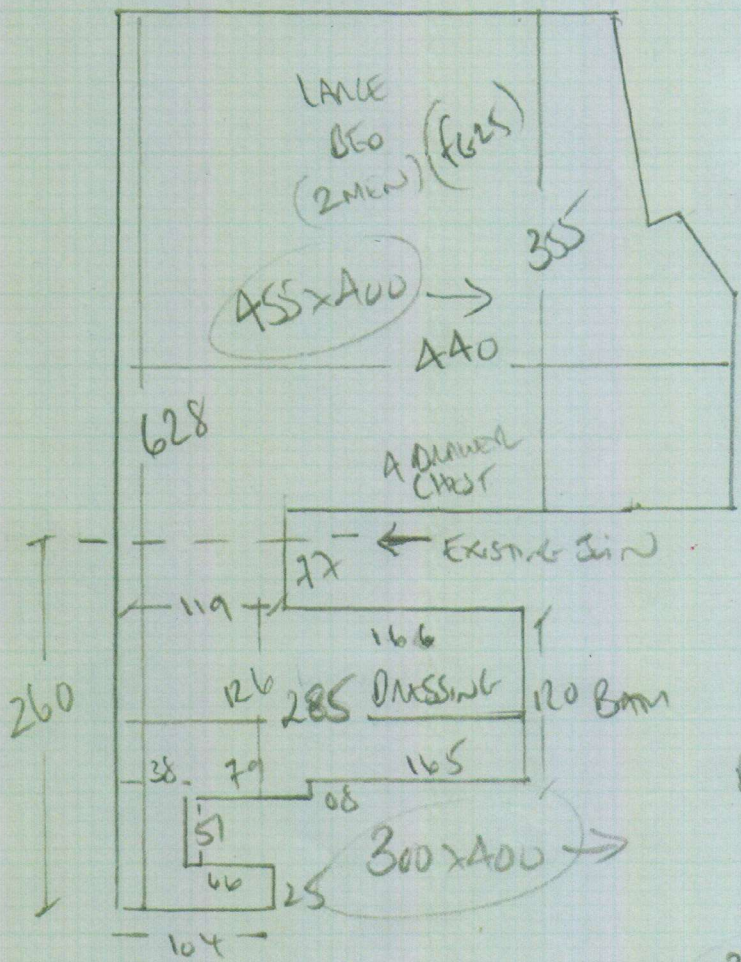 LARGE
BED
(2 MEN)
355
455 x 400 →
440
628
4 DRAWER
CHEST
← EXISTING JOIN
77
119
166
260
126
285 DRESSING
120 BATH
38
79
165
08
57
66
300 x 400 →
25
104